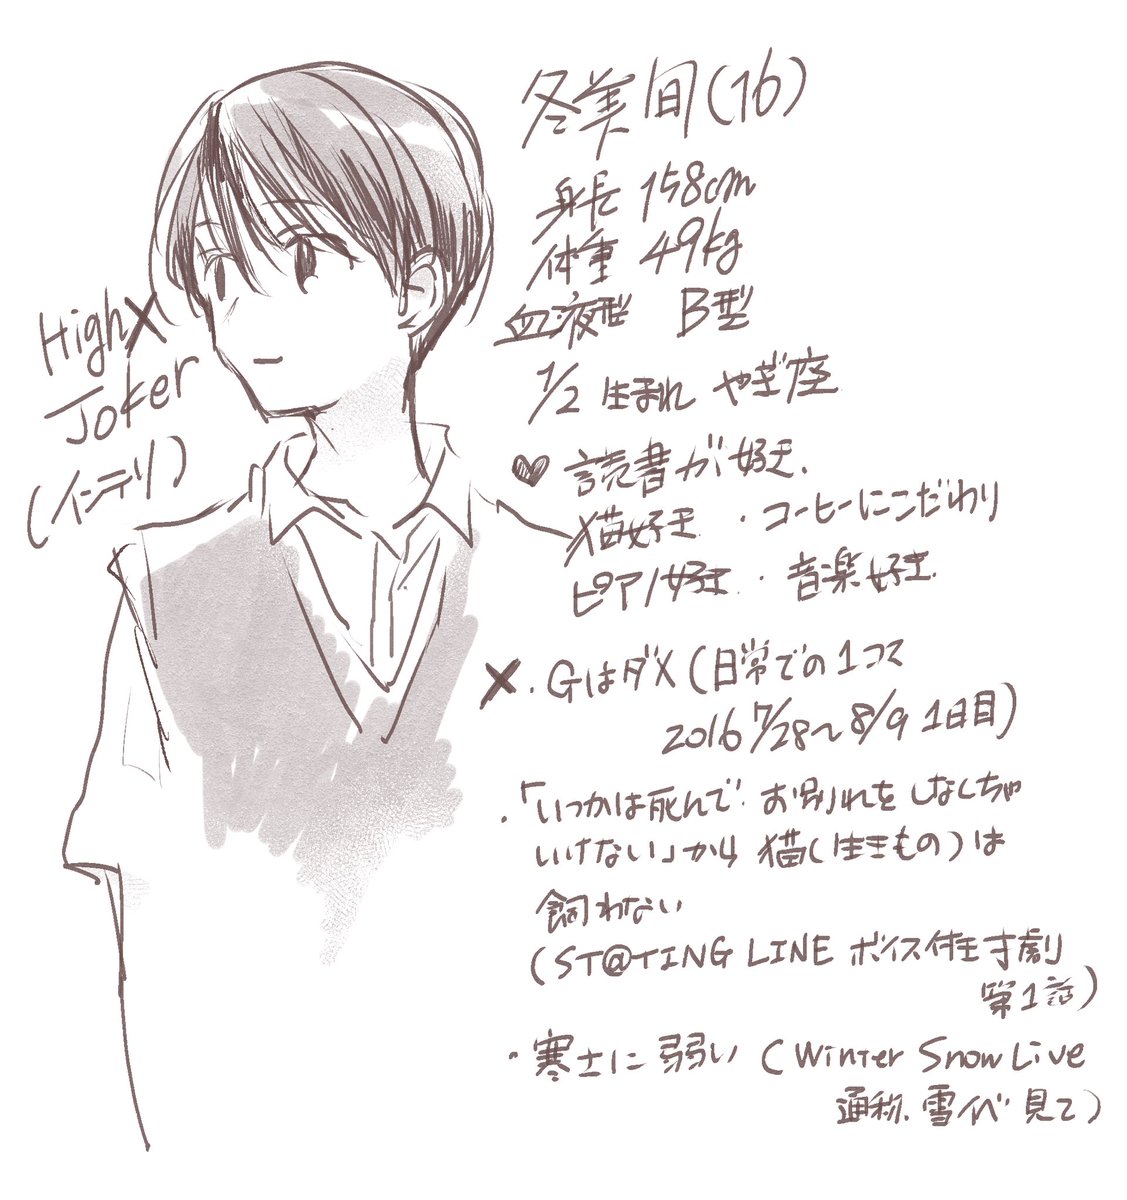 冬美旬(16)
身長 158cm
体重 49kg
血液型 B型
1/2 生まれ やぎ座
High×
Joker
(インテリ)
♥ 読書が好き.
猫好き ・コーヒーにこだわり
ピアノ好き ・音楽好き.
×・Gはダメ(日常での1コマ
2016 7/28〜8/9 1日目)
・「いつかは死んで お別れをしなくちゃ
いけない」から 猫(生きもの)は
飼わない
(ST@TING LINE ボイス付き寸劇
第1話)
・寒さに弱い (Winter Snow Live
通称、雪イベ 見て)